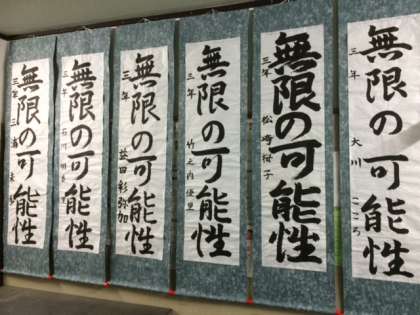 無限の可能性
三年 大川 こころ
無限の可能性
三年 松崎
無限の可能性
三年 竹之内優里
無限の可能性
三年 益田彩弥加
無限の可能性
三年 石川
無限の可能性
三年 三浦